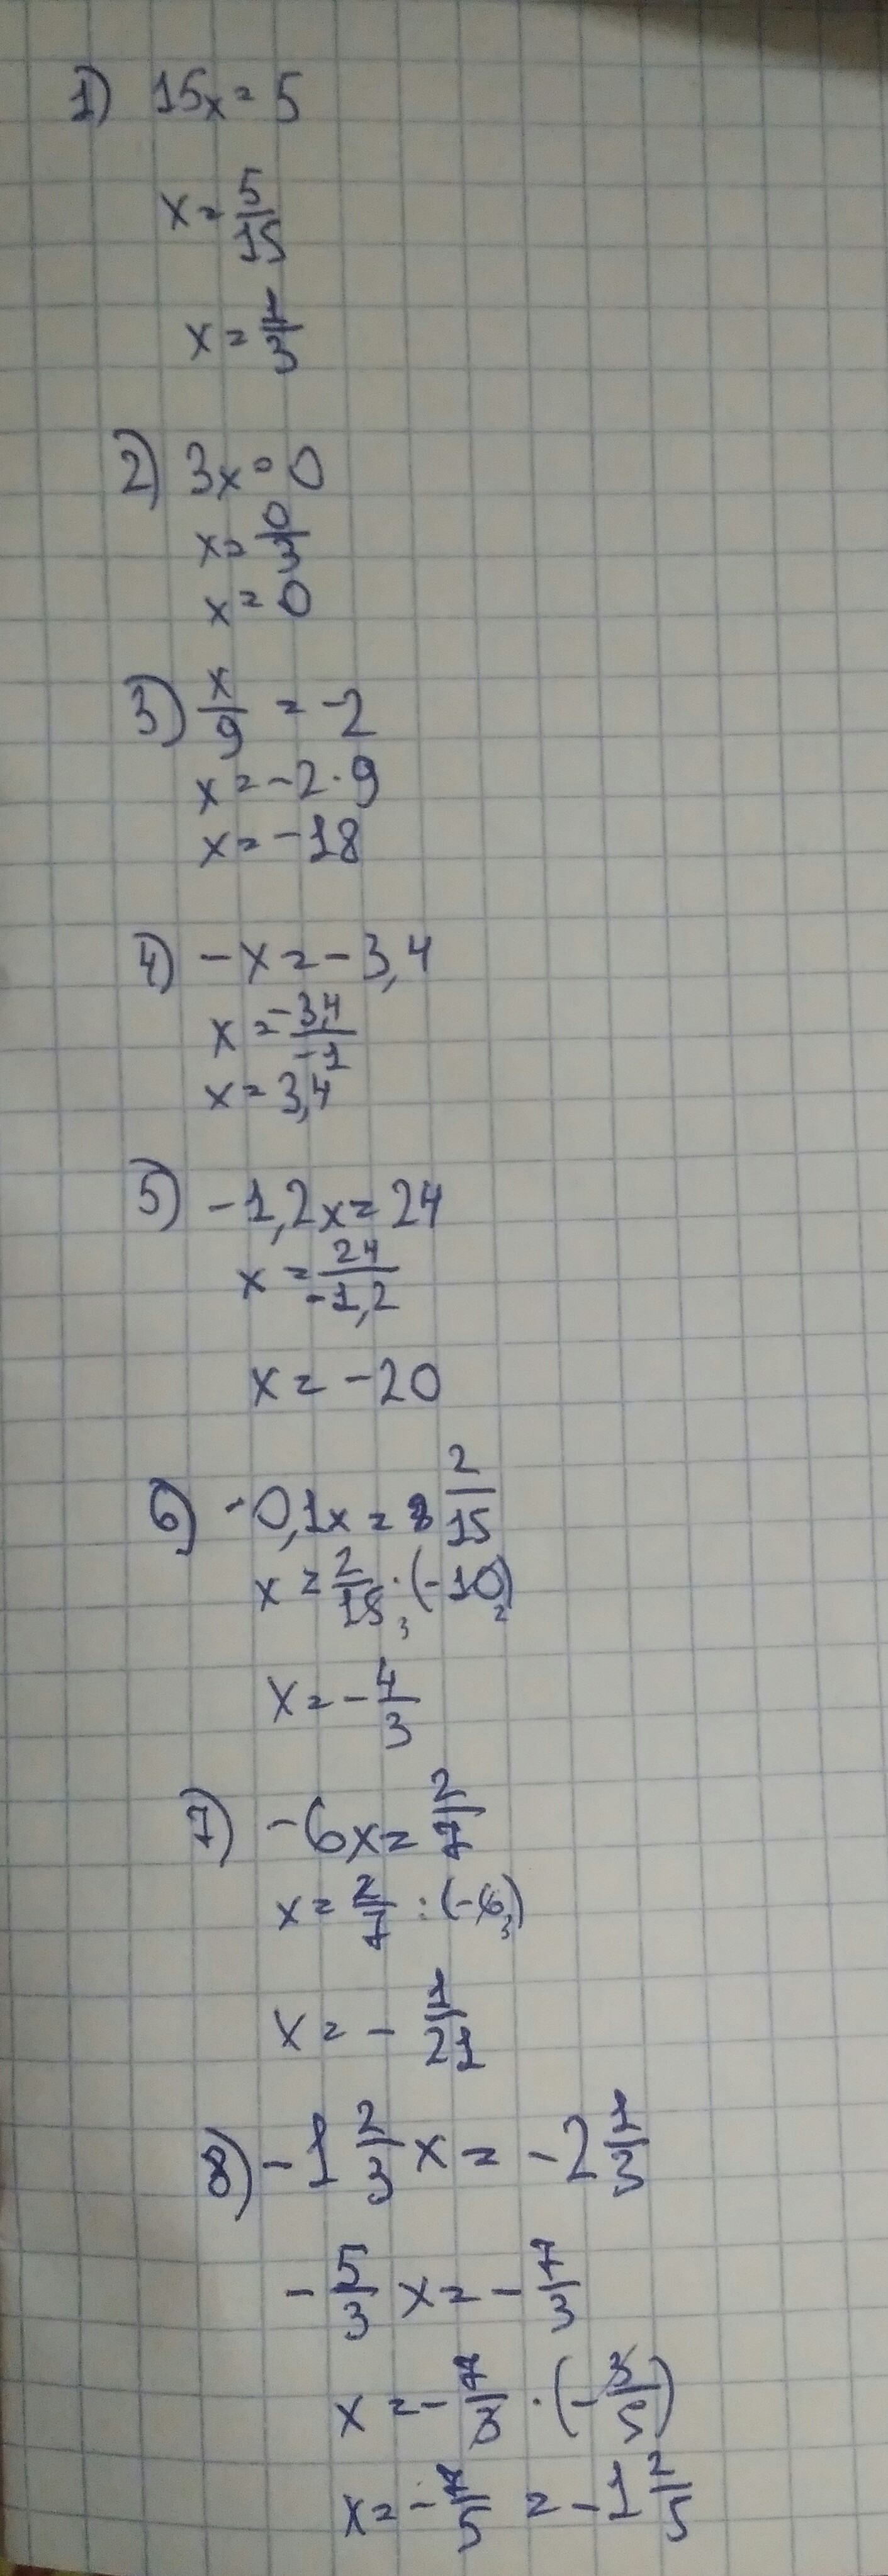 1) 15x = 5
x = 5/15
x = 1/3
2) 3x = 0
x = 0/3
x = 0
3) x/9 = -2
x = -2·9
x = -18
4) -x = -3,4
x = -3,4/-1
x = 3,4
5) -1,2x = 24
x = 24/-1,2
x = -20
6) -0,1x = 2/15
x = 2/15 3 · (-10) 2
x = -4/3
7) -6x = 2/7
x = 2/7 : (-6) 3
x = - 1/21
8) -1 2/3 x = -2 1/3
- 5/3 x = - 7/3
x = - 7/3 · (- 3/5)
x = - 7/5 = -1 2/5